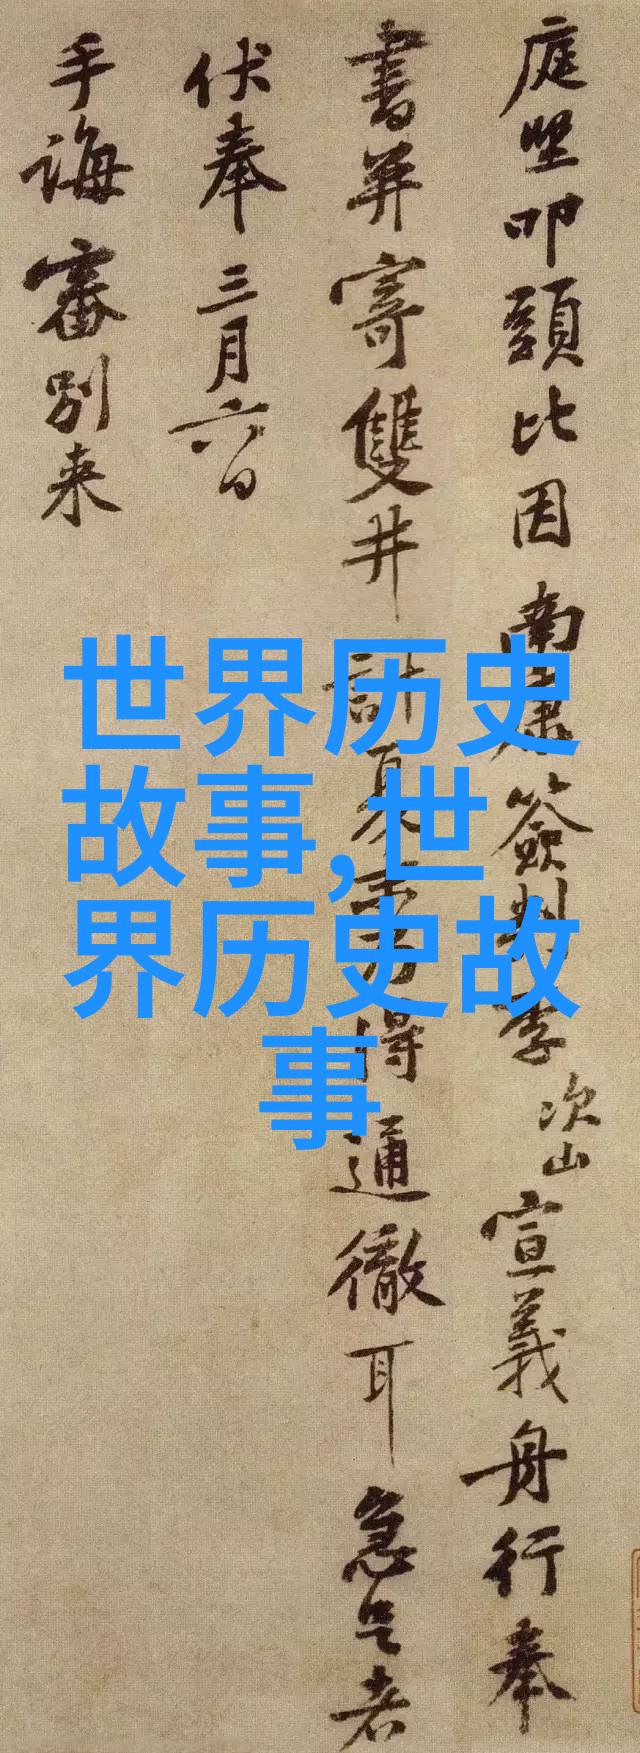 庭堅叩頭比因南康簽判李次山宣義舟行奉
書并寄雙井計夏中得通徹耳急足者
伏奉三月六日
手誨審別来
世界历史
故事,世
界历史故
事